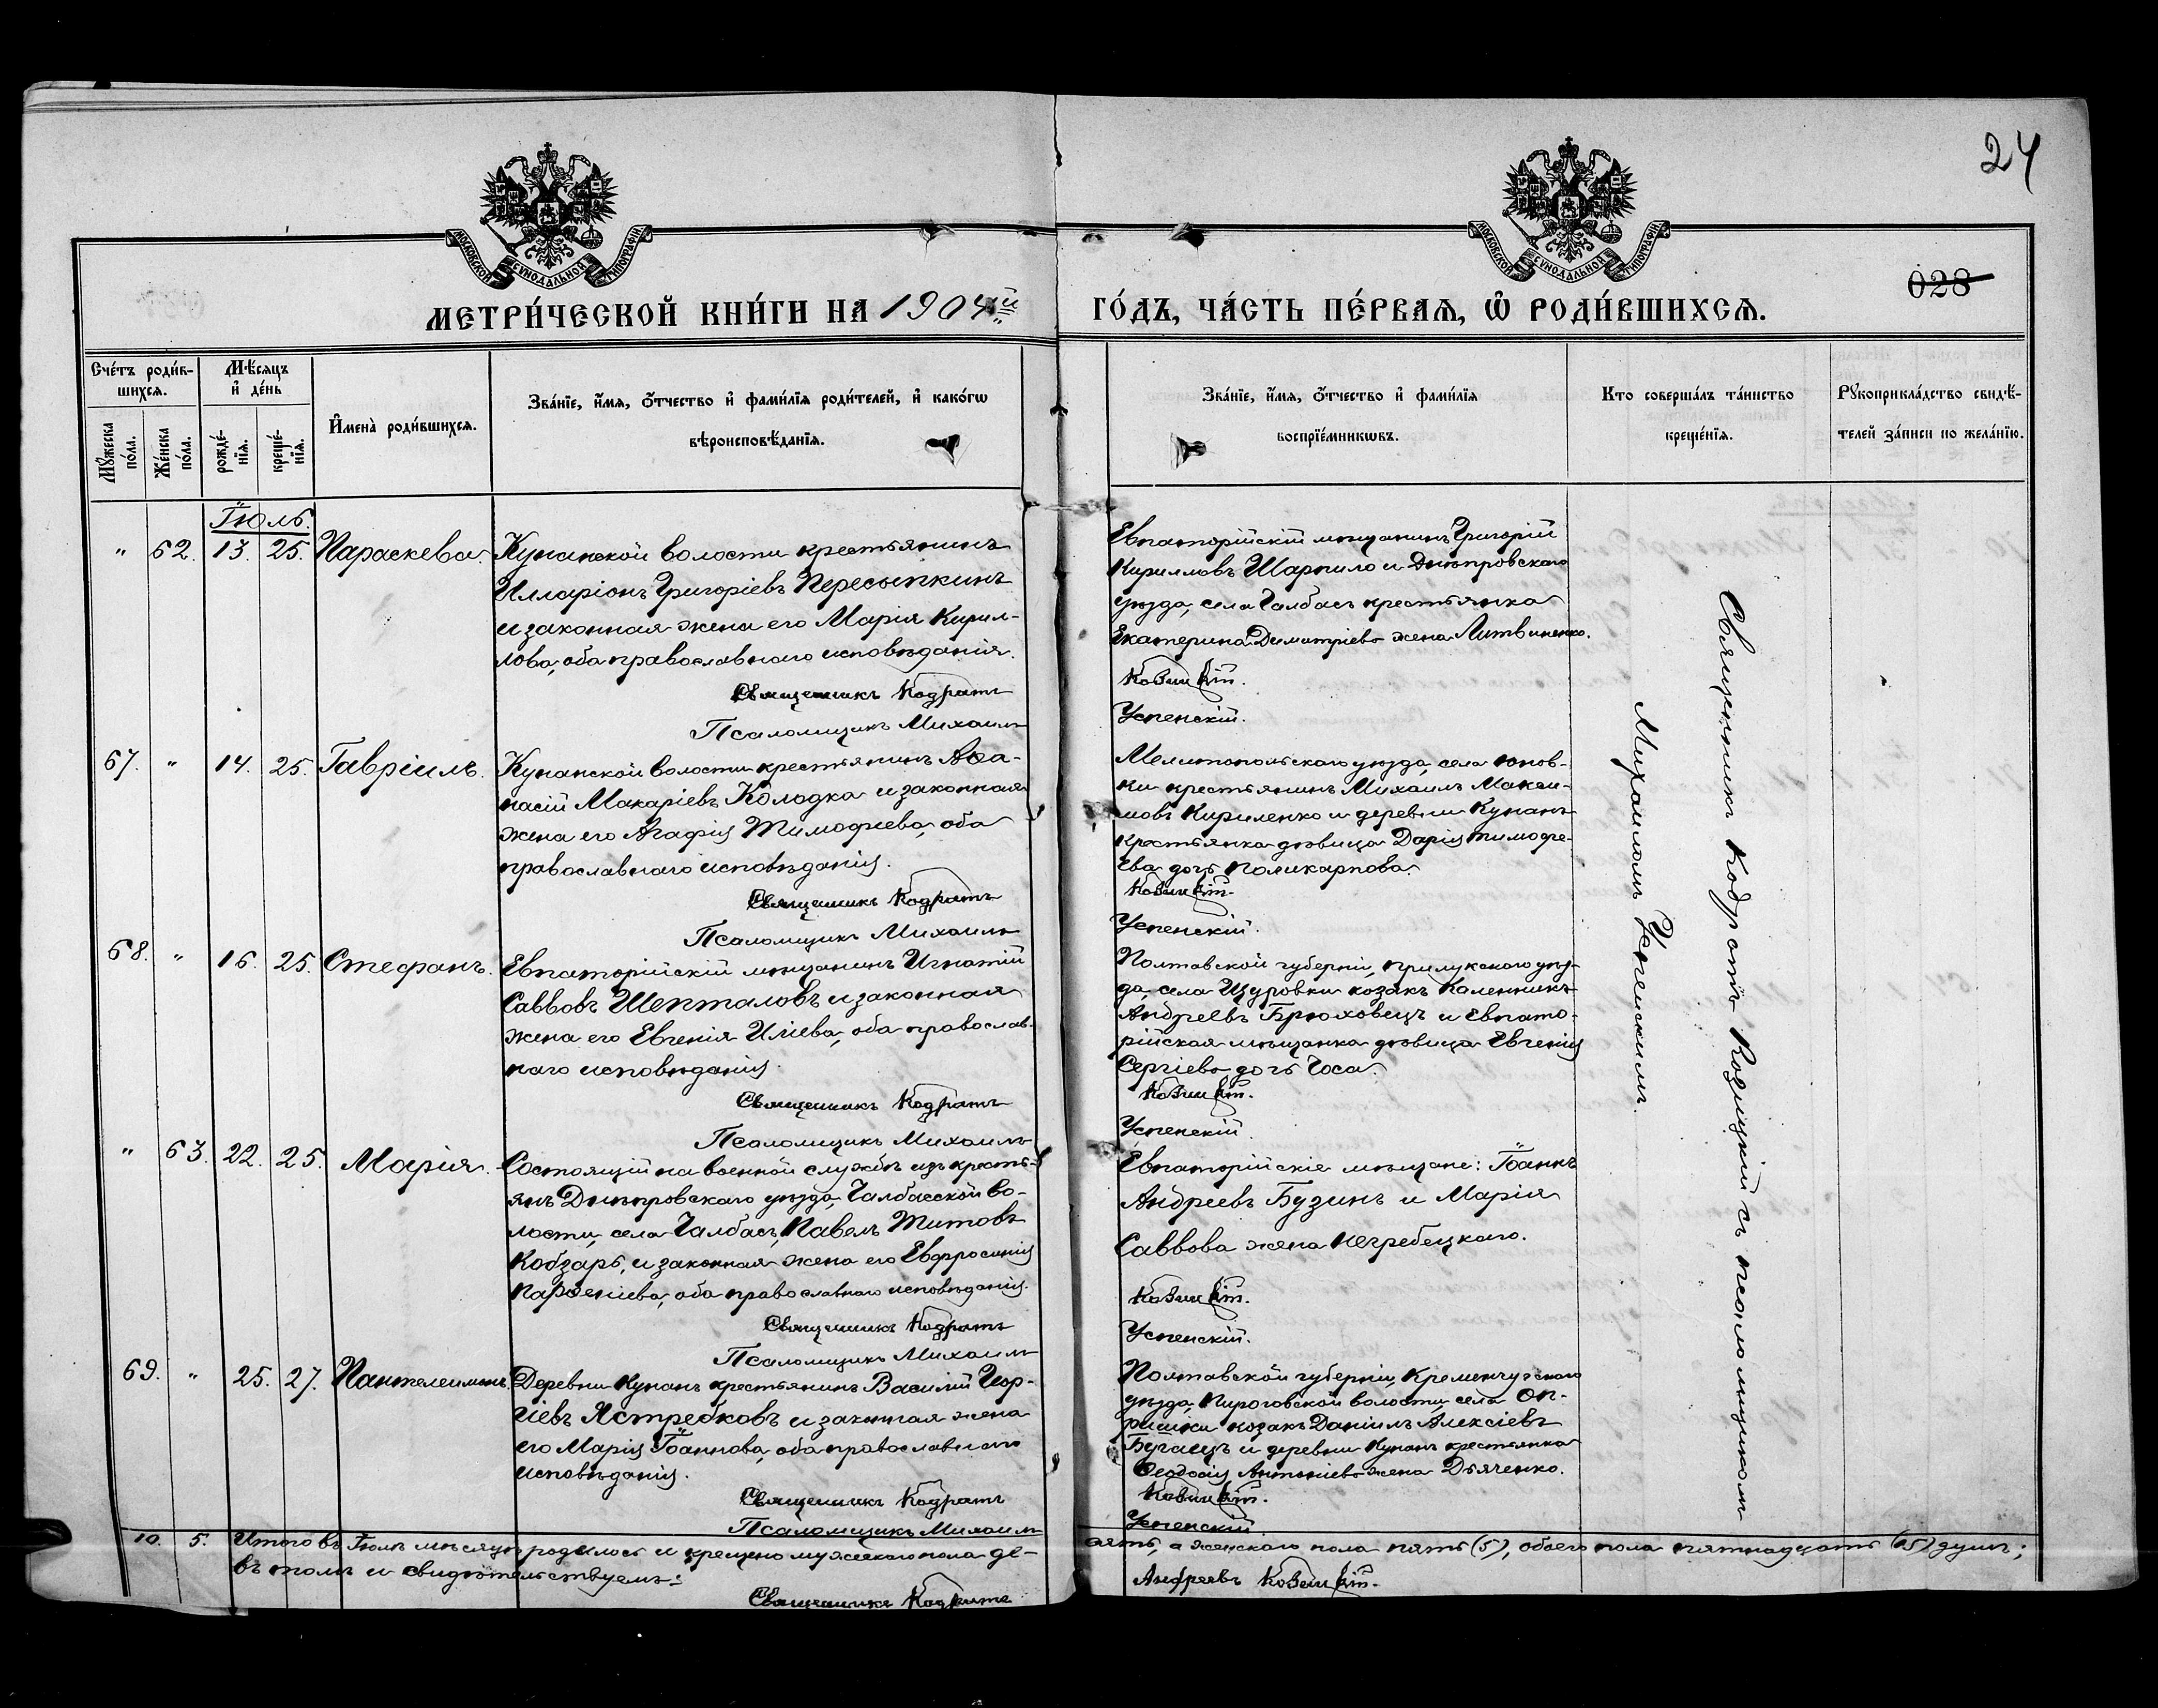 24
028
МОСКОВСКОЙ СѴНОДАЛЬНОЙ ТИПОГРАФІИ
МОСКОВСКОЙ СѴНОДАЛЬНОЙ ТИПОГРАФІИ
МЕТРИ́ЧЕСКОЙ КНИ́ГИ НА 1904й ГО́ДЪ, ЧА́СТЬ ПЕ́РВАѦ, Ѡ҆ РОДИ́ВШИХСѦ.
Сче́тъ роди́в-
шихсѧ.
Мѣ́сѧцъ
и҆ де́нь
Мꙋ́жеска по́ла.
Же́нска по́ла.
рожде́-
нїѧ.
креще́-
нїѧ.
И҆мена̀ роди́вшихсѧ.
Зва́нїе, и҆́мѧ, ѻ҆́тчество и҆ фами́лїѧ роди́телей, и҆ како́гѡ
вѣроисповѣ́данїѧ.
Зва́нїе, и҆́мѧ, ѻ҆́тчество и҆ фами́лїѧ
воспрїе́мникѡвъ.
Кто соверша́лъ та́инство
креще́нїѧ.
Рꙋкоприкла́дство свидѣ́-
телей за́писи по жела́нїю.
Іюль.
" 62. 13. 25. Параскева.
Кунанской волости крестьянинъ
Илларіонъ Григоріевъ Пересыпкинъ
и законная жена его Марія Кирил-
лова, оба православнаго исповѣданія.
Священникъ Кодратъ
Псаломщикъ Михаилъ
Евпаторійскій мѣщанинъ Григорій
Кирилловъ Шарпило и Днѣпровскаго
уѣзда, села Чалбасъ крестьянка
Екатерина Димитріева жена Литвиненко.
Козицкій.
Успенскій.
67. " 14. 25. Гавріилъ.
Кунанской волости крестьянинъ Аѳа-
насій Макаріевъ Колодка и законная
жена его Агафія Тимофеева, оба
православнаго исповѣданія.
Священникъ Кодратъ
Псаломщикъ Михаилъ
Мелитопольскаго уѣзда, села Юнов-
ки крестьянинъ Михаилъ Макси-
мовъ Кириленко и деревни Кунанъ
крестьянка дѣвица Дарія Тимофе-
ева дочь Поликарпова.
Козицкій.
Успенскій.
68. " 16. 25. Стефанъ.
Евпаторійскій мѣщанинъ Игнатій
Саввовъ Шепталовъ и законная
жена его Евгенія Иліева, оба православ-
наго исповѣданія.
Священникъ Кодратъ
Псаломщикъ Михаилъ
Полтавской губерніи, Прилукскаго уѣз-
да, села Щуровки козакъ Каленникъ
Андреевъ Брюховецъ и Евпато-
рійская мѣщанка дѣвица Евгенія
Сергіева дочь Чоса.
Козицкій.
Успенскій.
" 63. 22. 25. Марія.
Состоящій на военной службѣ изъ кресть-
янъ Днѣпровскаго уѣзда, Чалбасской во-
лости, села Чалбасъ, Павелъ Титовъ
Кобзарь, и законная жена его Евфросинія
Парѳеніева, оба православнаго исповѣданія.
Священникъ Кодратъ
Псаломщикъ Михаилъ
Евпаторійскіе мѣщане: Іоаннъ
Андреевъ Бузинъ и Марія
Саввова жена Негребецкаго.
Козицкій.
Успенскій.
69. " 25. 27. Пантелеимонъ.
Деревни Кунанъ крестьянинъ Василій Геор-
гіевъ Ястребковъ и законная жена
его Марія Іоаннова, оба православнаго
исповѣданія.
Священникъ Кодратъ
Псаломщикъ Михаилъ
Полтавской губерніи, Кременчугскаго
уѣзда, Пироговской волости села Оп-
ришки козакъ Даніилъ Алексіевъ
Бугаецъ и деревни Кунанъ крестьянка
Ѳеодосія Антоніева жена Дьяченко.
Козицкій.
Успенскій.
Священникъ Кодратъ Козицкій съ псаломщикомъ
Михаиломъ Успенскимъ.
10. 5. Итого въ Іюлѣ мѣсяцѣ родилось и крещено мужескаго пола де-
сять, а женскаго пола пять (5), обоего пола пятнадцать (15) душъ;
въ томъ и свидѣтельствуемъ:
Священникъ Кодратъ
Андреевъ Козицкій.